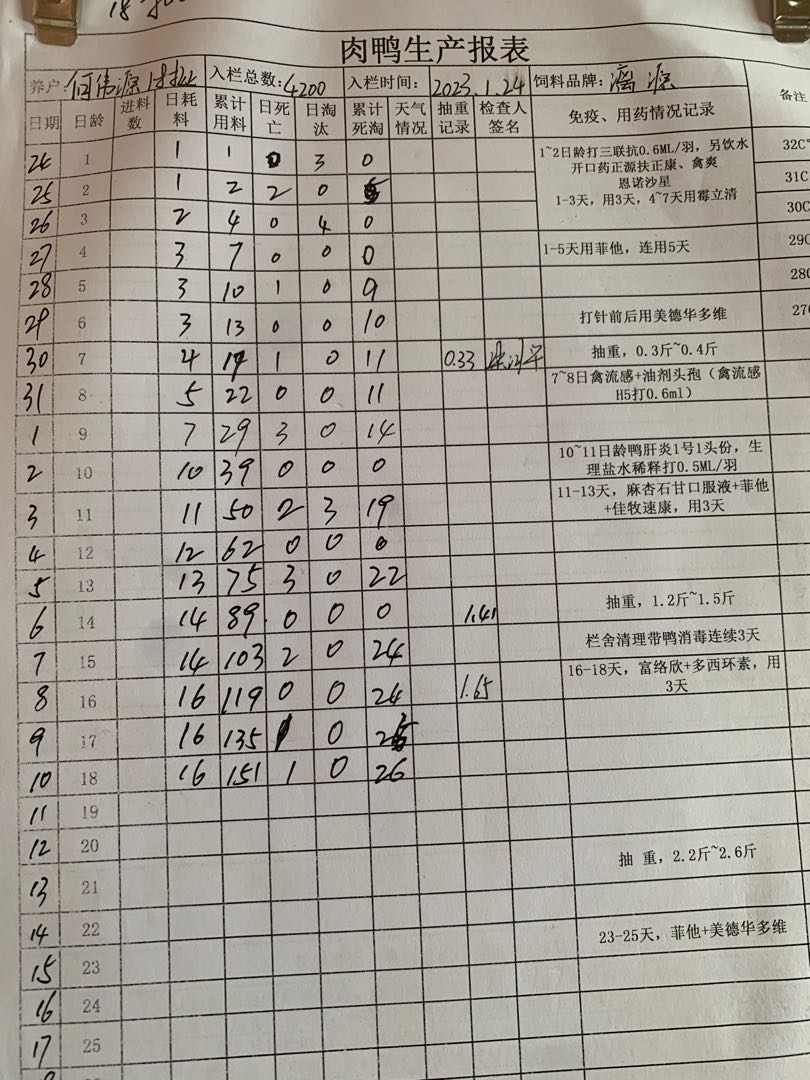 肉鸭生产报表
养户: 何伟源 入栏总数: 4200 入栏时间: 2023.1.24 饲料品牌: 漓源 备注
日期 日龄 进料数 日耗料 累计用料 日死亡 日淘汰 累计死淘 天气情况 抽重记录 检查人签名 免疫、用药情况记录
24 1 1 1 0 3 0 1~2日龄打三联抗0.6ML/羽，另饮水开口药正源扶正康、禽爽 恩诺沙星 32C°
25 2 1 2 2 0 5 1-3天，用3天，4~7天用霉立清 31C
26 3 2 4 0 4 0 30C
27 4 3 7 0 0 0 1-5天用菲他，连用5天 29C
28 5 3 10 1 0 9 28C
29 6 3 13 0 0 10 打针前后用美德华多维 27C
30 7 4 17 1 0 11 0.33 抽重，0.3斤~0.4斤
31 8 5 22 0 0 11 7~8日禽流感+油剂头孢（禽流感H5打0.6ml）
1 9 7 29 3 0 14
2 10 10 39 0 0 0 10~11日龄鸭肝炎1号1头份，生理盐水稀释打0.5ML/羽
3 11 11 50 2 3 19 11-13天，麻杏石甘口服液+菲他+佳牧速康，用3天
4 12 12 62 0 0 0
5 13 13 75 3 0 22
6 14 14 89 0 0 0 1.41 抽重，1.2斤~1.5斤
7 15 14 103 2 0 24 栏舍清理带鸭消毒连续3天
8 16 16 119 0 0 24 1.65 16-18天，富络欣+多西环素，用3天
9 17 16 135 1 0 25
10 18 16 151 1 0 26
11 19
12 20 抽 重，2.2斤~2.6斤
13 21
14 22 23-25天，菲他+美德华多维
15 23
16 24
17 25